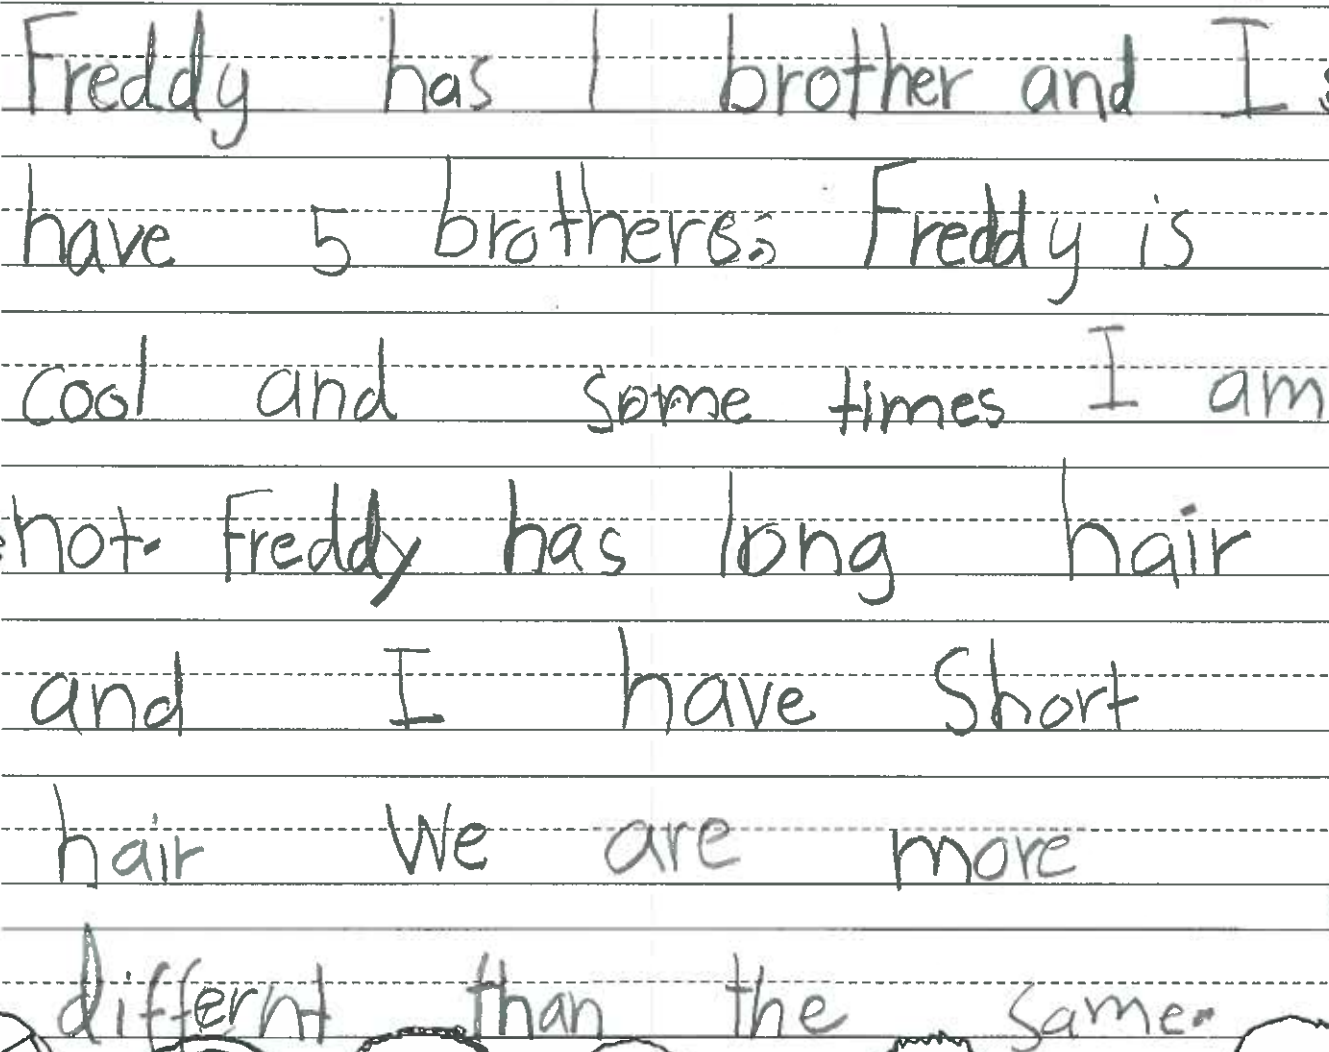 Freddy has 1 brother and I
have 5 brothers. Freddy is
cool and some times I am
not. Freddy has long hair
and I have Short
hair We are more
differnt than the same.